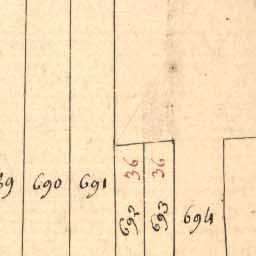 690
691
36
692
36
693
694